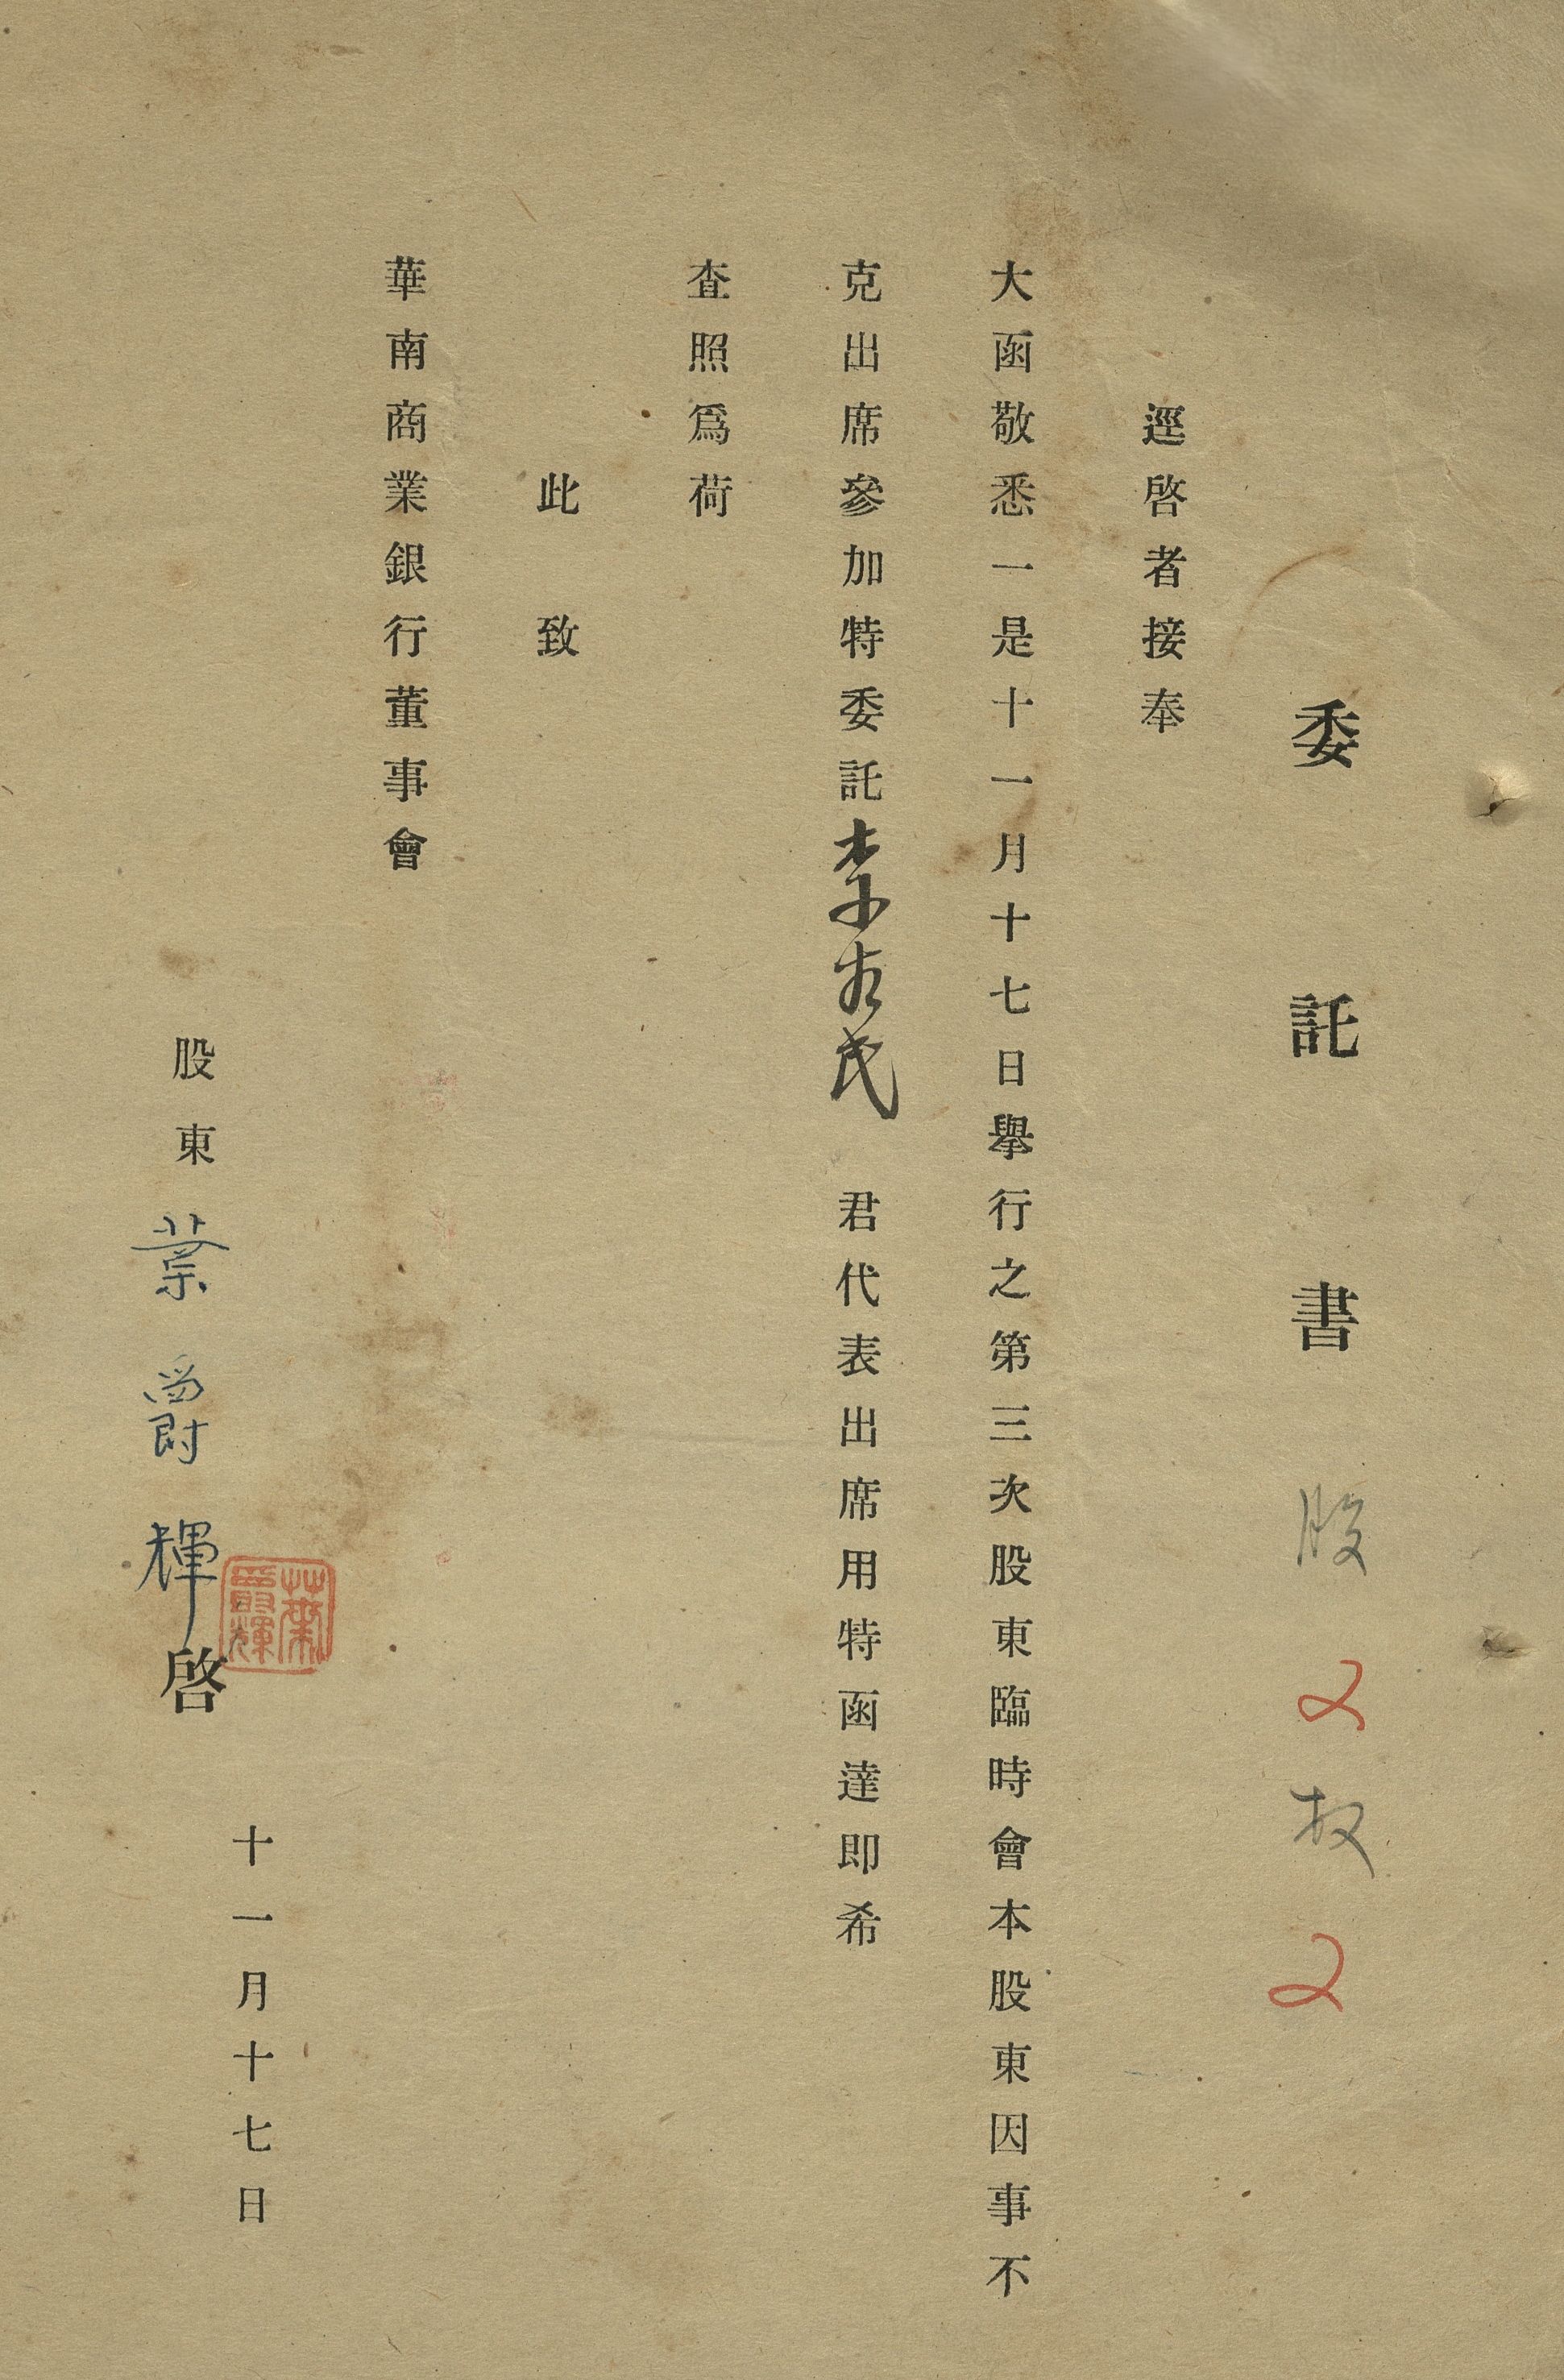 委託書 股 2 权 2
逕啓者接奉
大函敬悉一是十一月十七日舉行之第三次股東臨時會本股東因事不
克出席參加特委託李友民 君代表出席用特函達即希
查照爲荷
此致
華南商業銀行董事會
十一月十七日
股東 葉爵輝 啓
葉爵輝